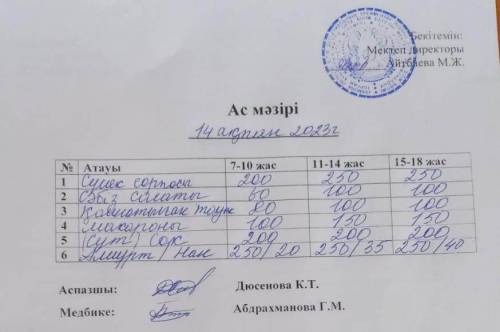 Бекітемін:
Мектеп директоры
Айтбаева М.Ж.
Ас мәзірі
14 ақпан 2023г
№ Атауы 7-10 жас 11-14 жас 15-18 жас
1 Сүйек сорпасы 200 250 250
2 салаты 60 100 100
3 Қайнатылған тауық 80 100 100
4 макароны 100 150 150
5 (Сүт) Сок 200 200 200
6 Йогурт / Нан 250/20 250/35 250/40
Аспазшы: Дюсенова К.Т.
Медбике: Абдрахманова Г.М.